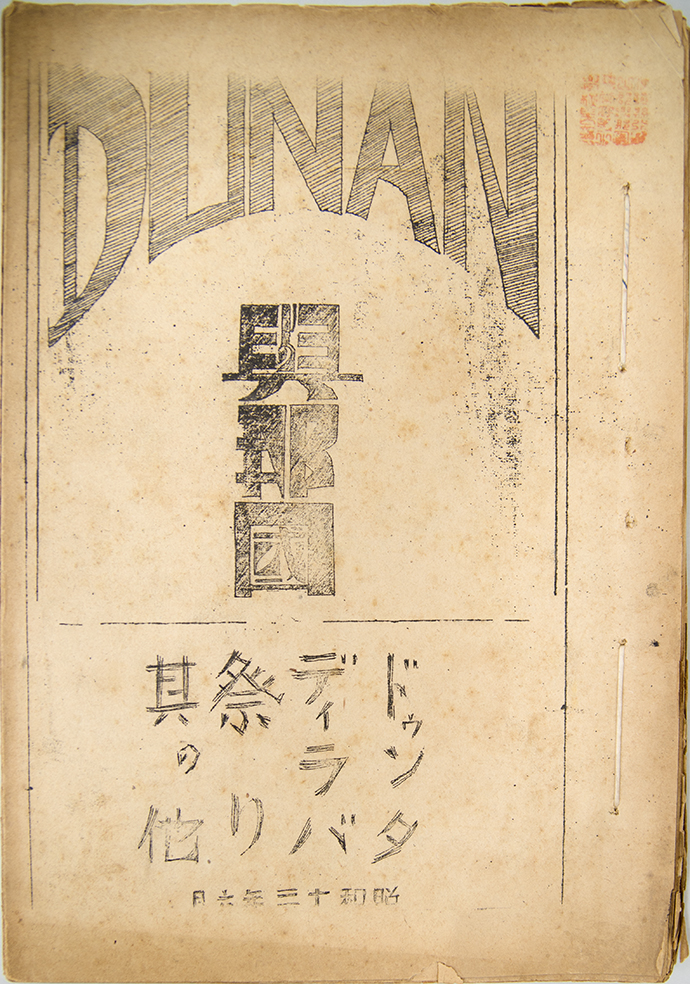 DUNAN
與那國
ドゥンタ
ディラバ
祭り
其の他
昭和十三年六月